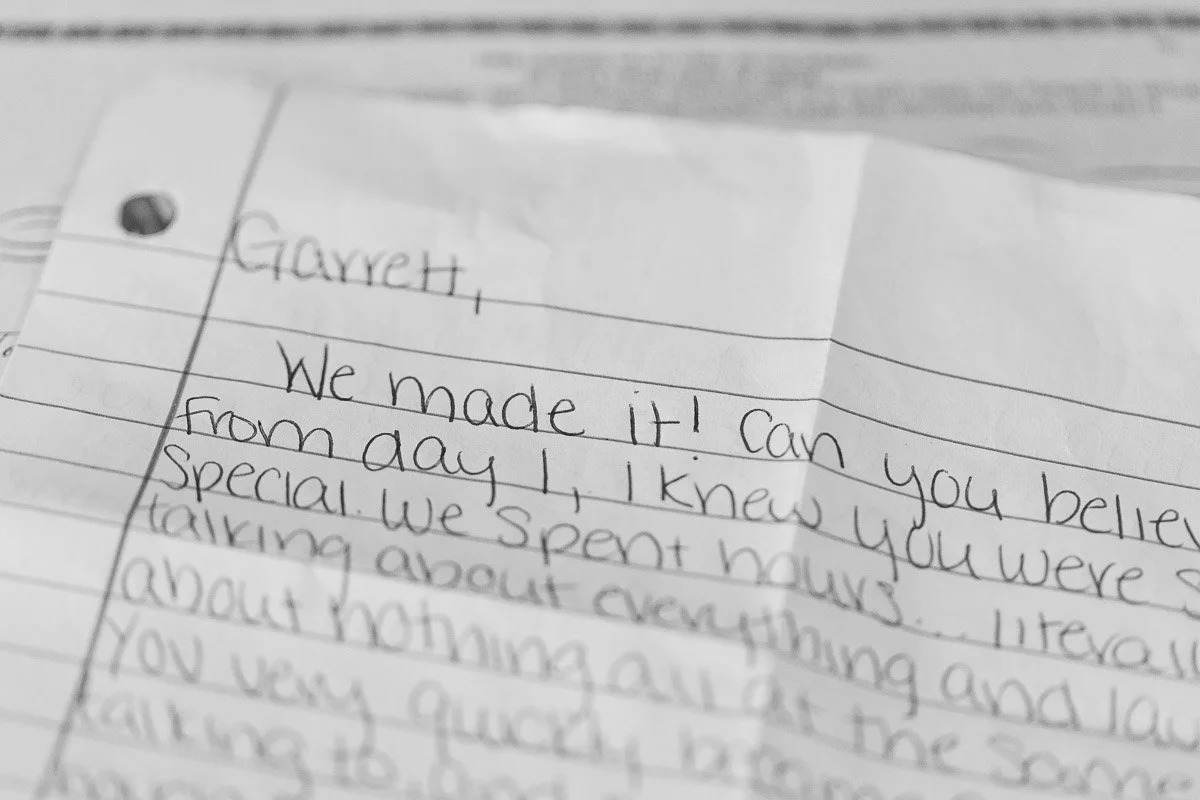 Garrett,
We made it! Can you believ
From day 1, I knew you were s
special. We spent hours... literall
talking about everything and lau
about nothing all at the same
You very quickly became
talking to, and